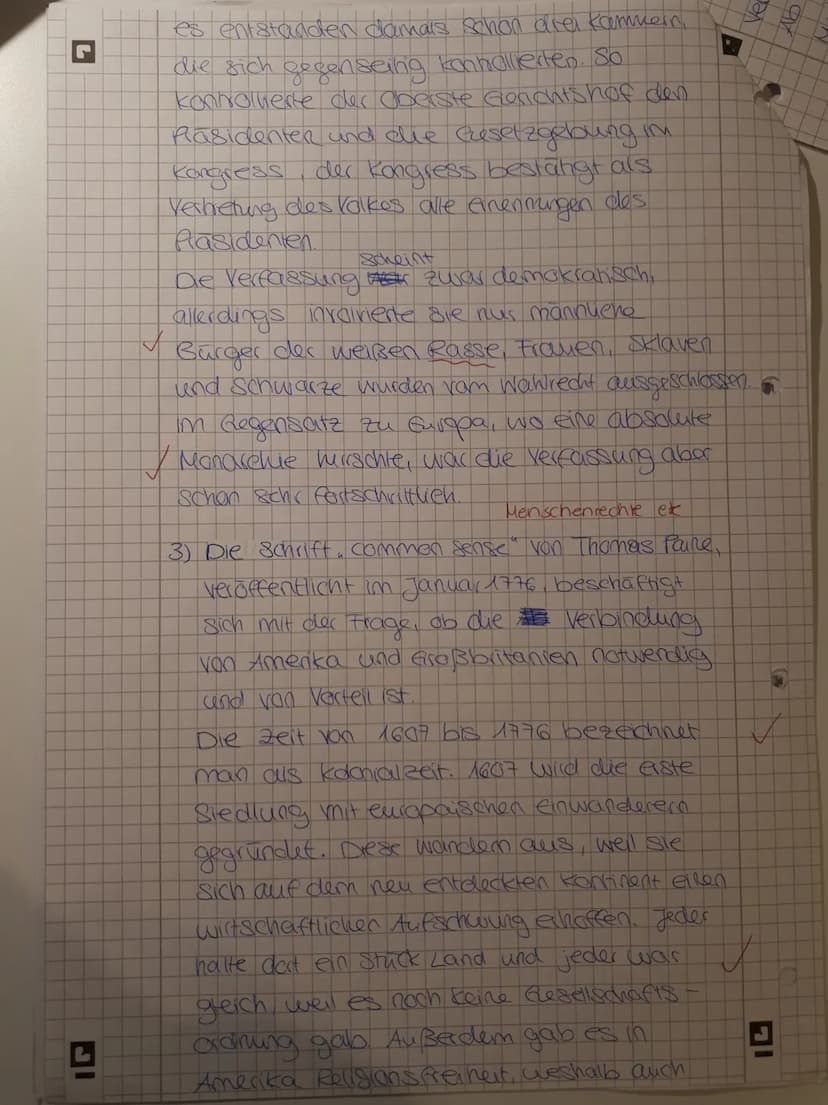 es entstanden damals schon drei Kammern,
die sich gegenseitig kontrollierten. So
kontrollierte der Oberste Gerichtshof den
Präsidenten und die Gesetzgebung im
Kongress, der Kongress bestätigt als
Vertretung des Volkes alle Ernennungen des
Präsidenten.
scheint
Die Verfassung zwar demokratisch,
allerdings involvierte sie nur männliche
Bürger der weißen Rasse, Frauen, Sklaven
und Schwarze wurden vom Wahlrecht ausgeschlossen.
Im Gegensatz zu Europa, wo eine absolute
Monarchie herrschte, war die Verfassung aber
schon sehr fortschrittlich.
Menschenrechte etc
3) Die Schrift „common sense" von Thomas Paine,
veröffentlicht im Januar 1776, beschäftigt
sich mit der Frage, ob die Verbindung
von Amerika und Großbritanien notwendig
und von Vorteil ist.
Die Zeit von 1607 bis 1776 bezeichnet
man als Kolonialzeit. 1607 wird die erste
Siedlung mit europäischen Einwanderern
gegründet. Diese wandern aus, weil sie
sich auf dem neu entdeckten Kontinent einen
wirtschaftlichen Aufschwung erhoffen. Jeder
hatte dort ein Stück Land und jeder war
gleich, weil es noch keine Gesellschafts-
ordnung gab. Außerdem gab es in
Amerika Religionsfreiheit, weshalb auch